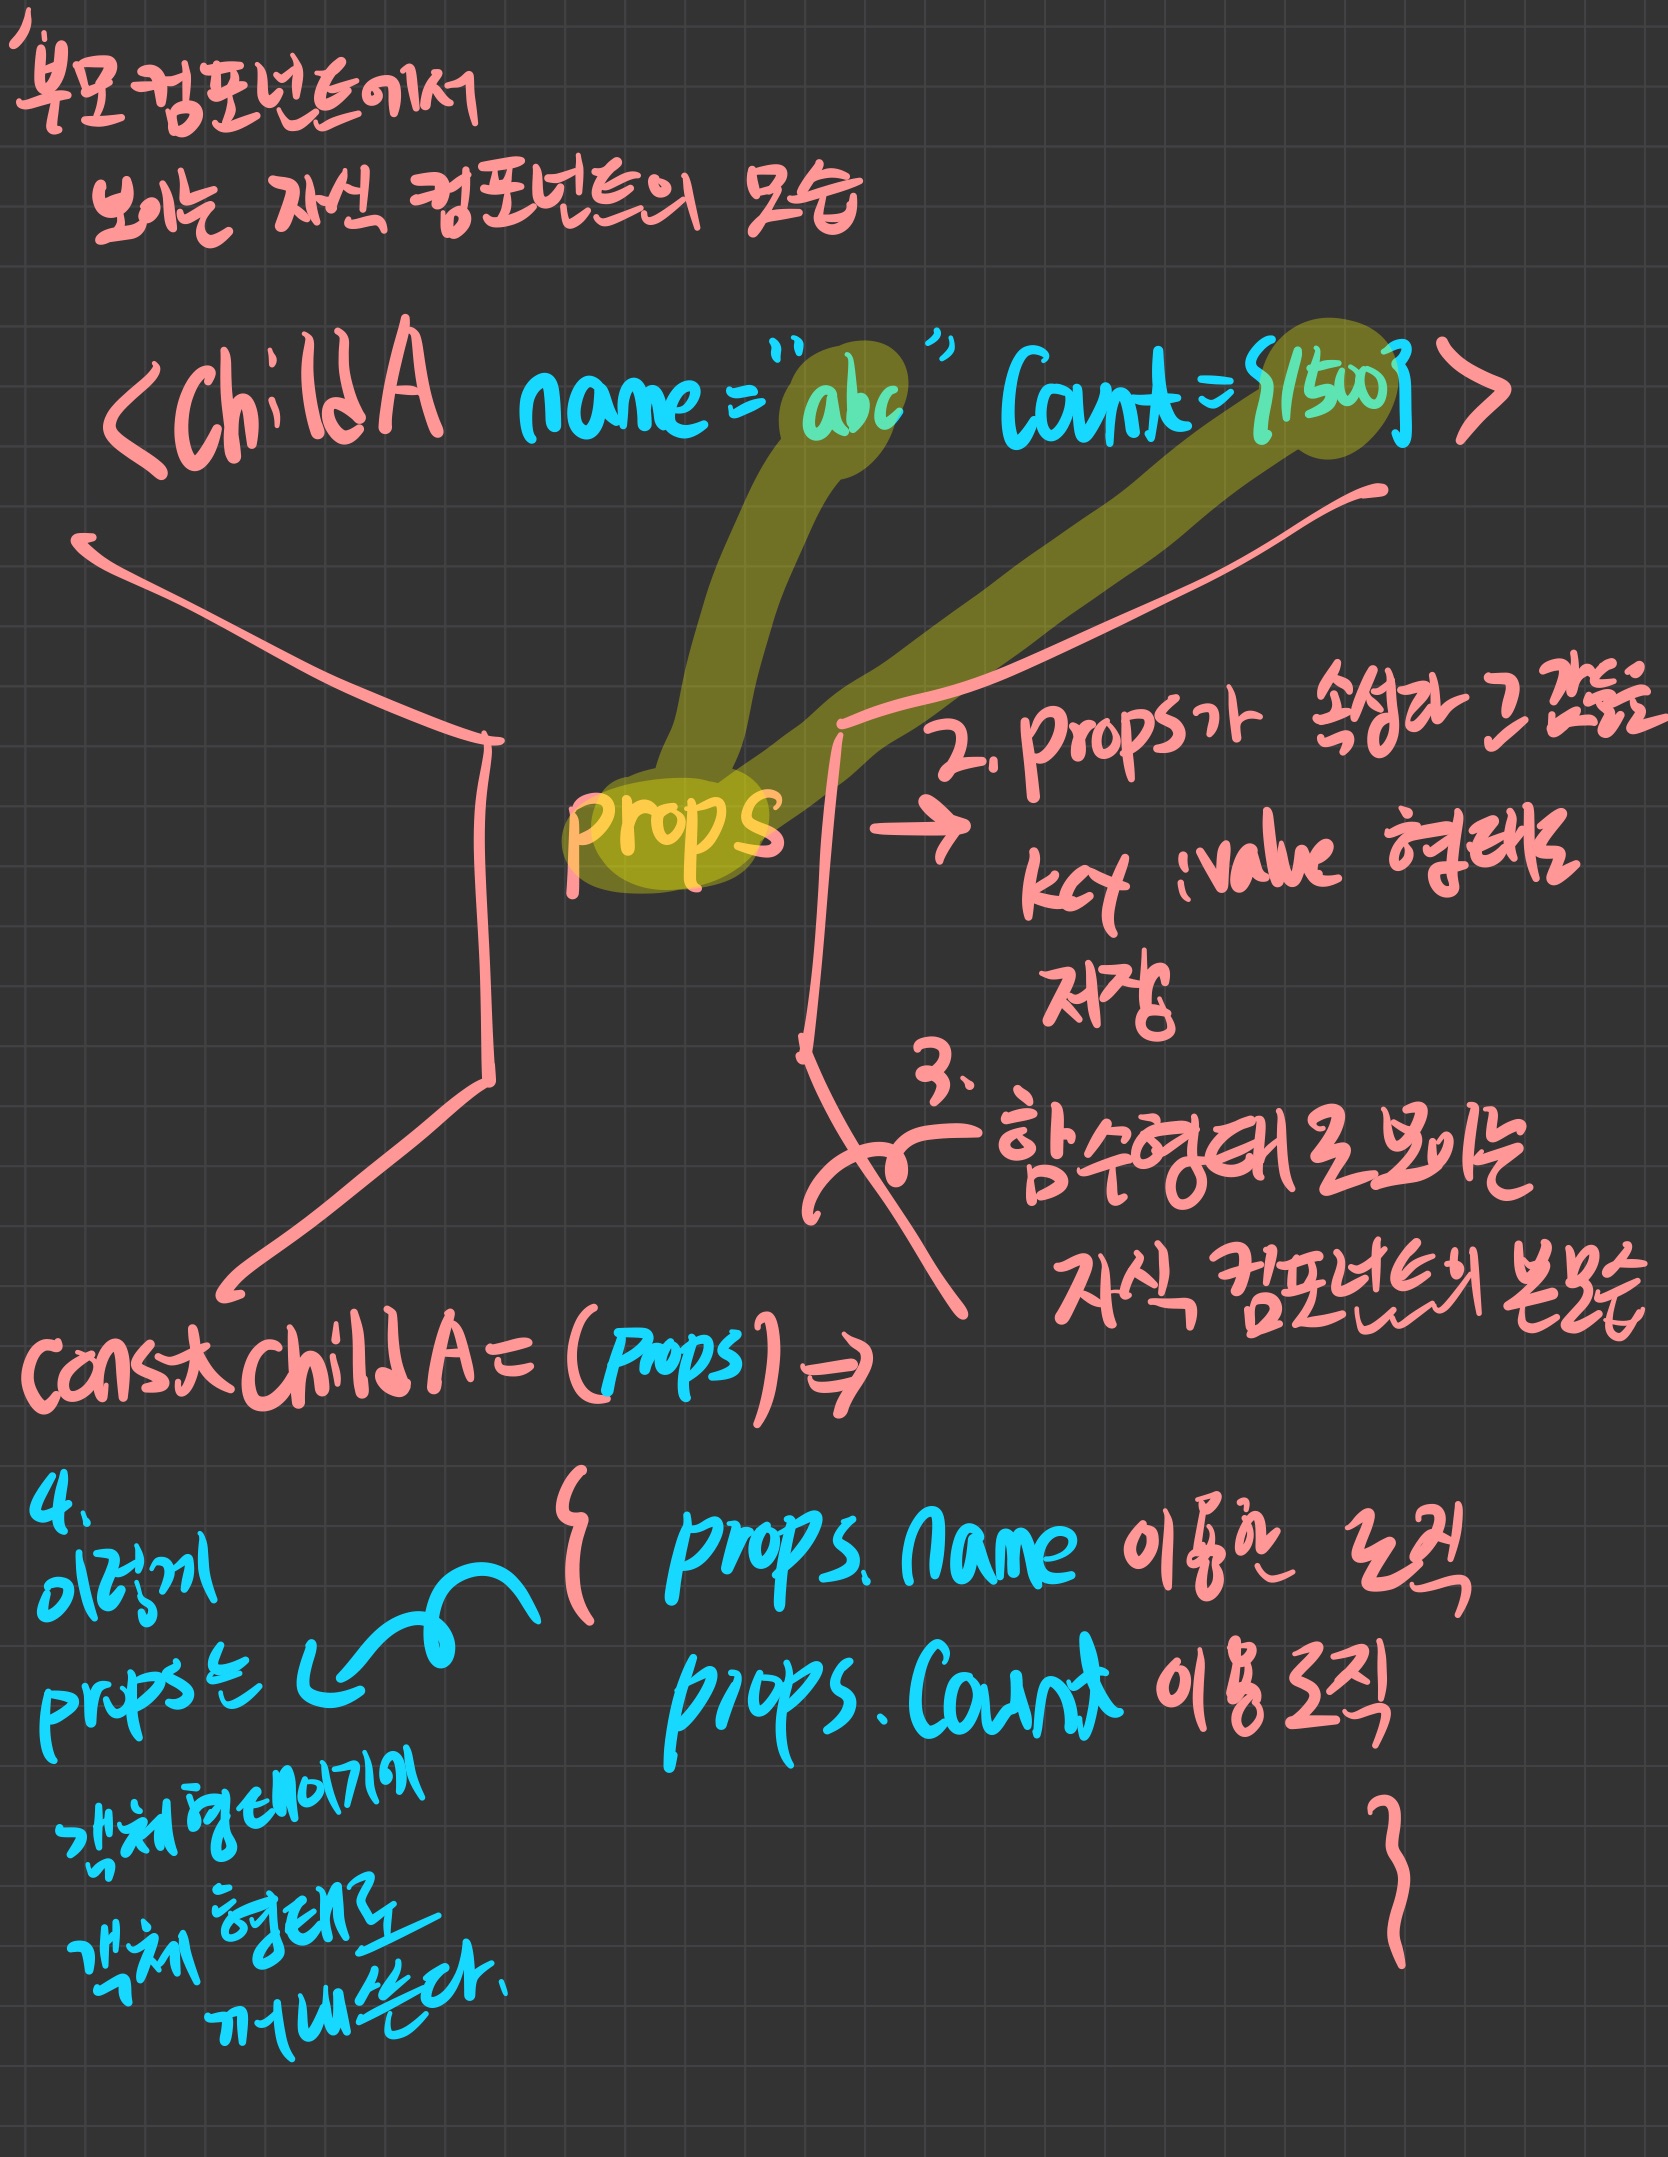 1.
부모 컴포넌트에서
보이는 자식 컴포넌트의 모습
<ChildA name="abc" Count={1500}>
props
2. props가 속성과 그 값들을
→ key : value 형태로
저장
3. 함수형태로 보이는
자식 컴포넌트의 본모습
const ChildA = (props) ⇒
{ props.name 이용한 로직
props.Count 이용 로직
}
4.
이렇게
props는
객체 형태이기에
객체 형태로
꺼내 쓴다.